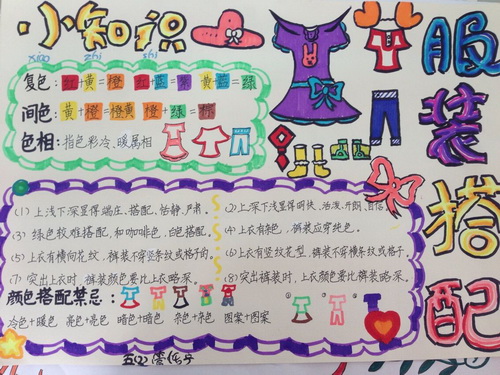 小知识
xiao zhi shi
服装搭配
复色：红+黄=橙 红+蓝=紫 黄+蓝=绿
间色：黄+橙=橙黄 橙+绿=棕
色相：指色彩冷、暖属相
(1) 上浅下深显得端庄、搭配、恬静、严肃。
(2) 上深下浅显得明快、活泼、开朗、自信。
(3) 绿色较难搭配，和咖啡色、白色搭配。
(4) 上衣有杂色，裤装应穿纯色。
(5) 上衣有横向花纹，裤装不穿竖条纹或格子的。
(6) 上衣有竖纹花型，裤装不穿横条纹或格子。
(7) 突出上衣时，裤装颜色要比上衣略深。
(8) 突出裤装时，上衣颜色要比裤装略深。
颜色搭配禁忌：
① ② ③
冷色+暖色 亮色+亮色 暗色+暗色 杂色+杂色 图案+图案